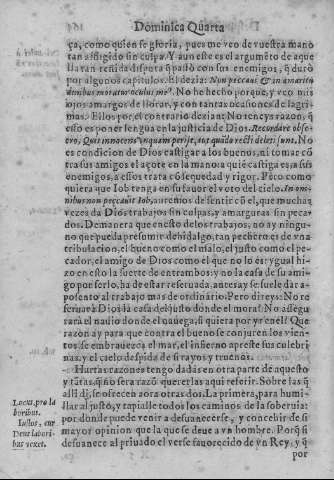 Dominica Quarta
ça, como quien se gloria, pues me veo de vuestra mano
tan afligido sin culpa. Y aun este es el argumẽto de aque
lla tan reñida disputa q̃ passò con sus enemigos, q̃ durò
por algunos capitulos. El dezia: Non peccaui, & in amaritu
dinibus moratur oculus meꝰ. No he hecho porque, y veo mis
ojos amargos de llorar, y con tantas ocasiones de lagri-
mas? Ellos por el contrario dezian: No teneys razon, q̃
esso es poner lengua en la justicia de Dios. Recordare obse-
cro, Quis innocens vnquam perijt, aut quãdo recti deleti sunt. No
es condicion de Dios castigar a los buenos, ni tomar cõ
tra sus amigos el açote en la mano: a quiẽ castiga es a sus
enemigos, a essos trata cõ sequedad y rigor. Pero como
quiera que Iob tenga en su fauor el voto del cielo. In om-
nibus non peccauit Iob, auremos de sentir cõ el, que muchas
vezes da Dios trabajos sin culpas, y amarguras sin peca-
dos. De manera que en esto de los trabajos, no ay ningu-
no que pueda presumir de hidalgo, tan pechero es de vna
tribulacion, el bueno como el malo, el justo como el pe-
cador, el amigo de Dios como el que no lo es: ygual hi-
zo en esto la suerte de entrambos: y no la casa de su ami-
go por serlo, ha de estar reseruada, antes ay se suele dar a-
posento al trabajo mas de ordinario. Pero direys: No re
seruarà Dios la casa del justo donde el mora? No assegu
rarà el nauio donde el nauega, si quiera por yr en el? Que
razon ay para que contra el bueno se conjuren los vien-
tos, se embrauezca el mar, el infierno apreste sus culebri
nas, y el cielo despida de si rayos y truenos.
Hartas razones tengo dadas en otra parte de aquesto
y tãtas, q̃ no sera razõ quererlas aqui referir. Sobre las q̃
alli dixe, se ofrecen aora otras dos. La primera, para humi
llar al justo, y tapialle todos los caminos de la soberuia:
por donde puede venir a desuanecerse, y concebir de si
mayor opinion que la que se deue a vn hombre. Porq̃ si
desuanece al priuado el verse fauorecido de vn Rey, y q̃
por
Locus, pro la
boribus.
Iustos, cur
Deus labori-
bus vexet.